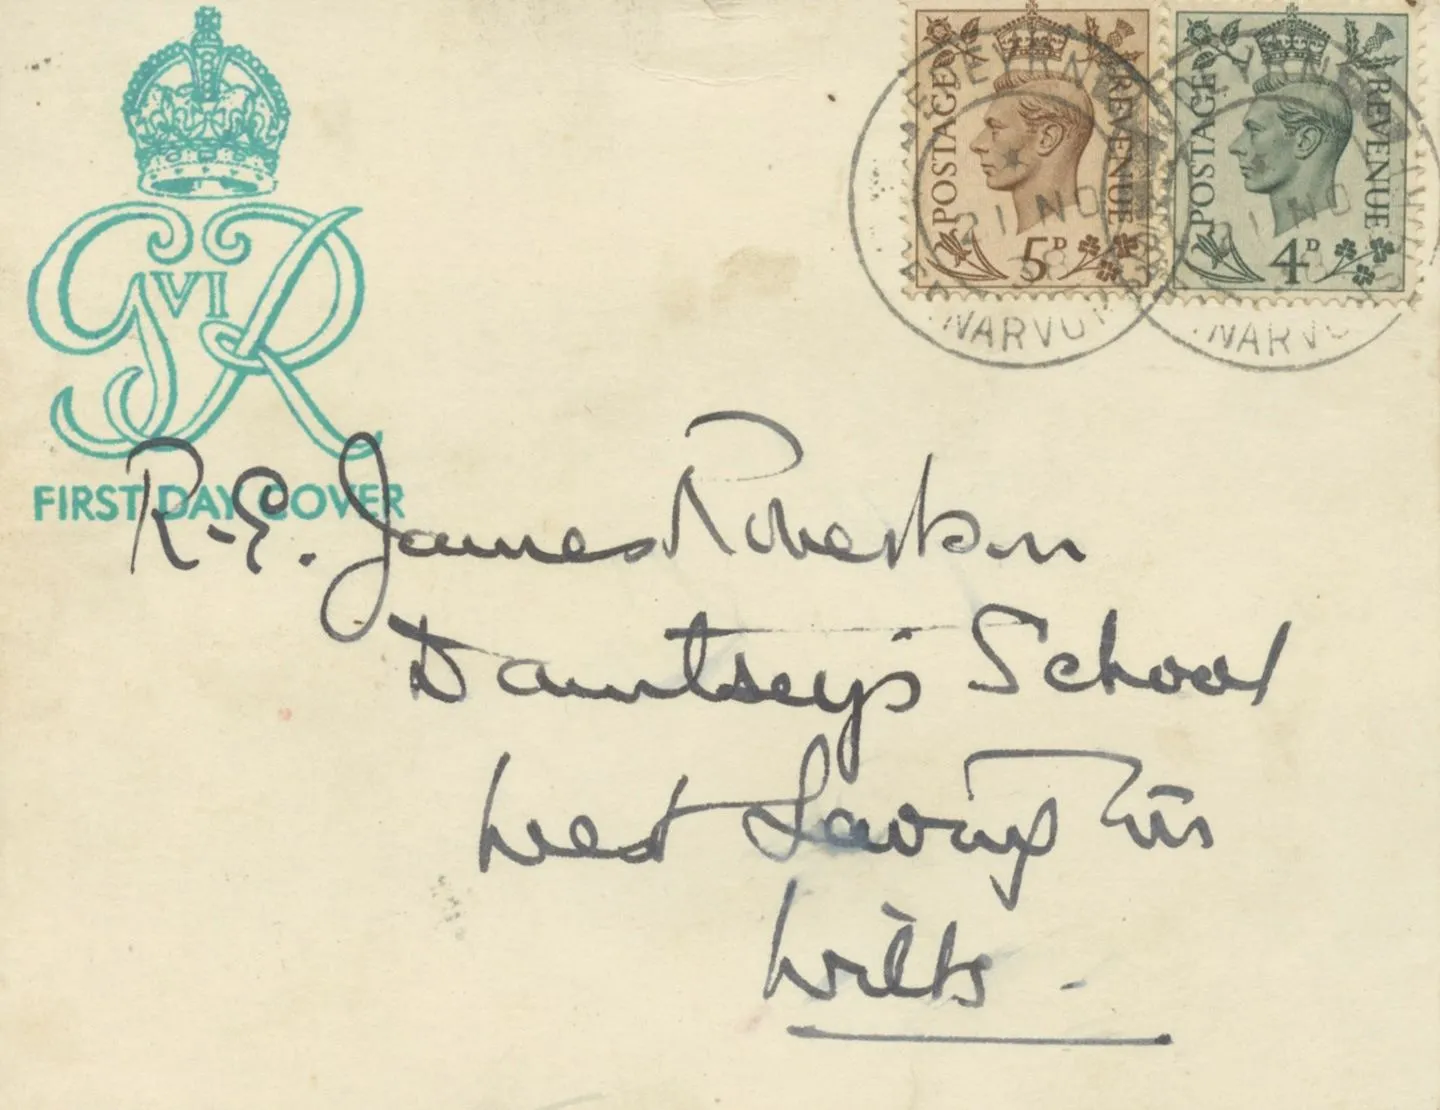 G VI R
FIRST DAY COVER
POSTAGE REVENUE
5D
POSTAGE REVENUE
4D
21 NO
38
21 NO
38
R.E. James Robertson
Dauntsey's School
West Lavington
Wilts